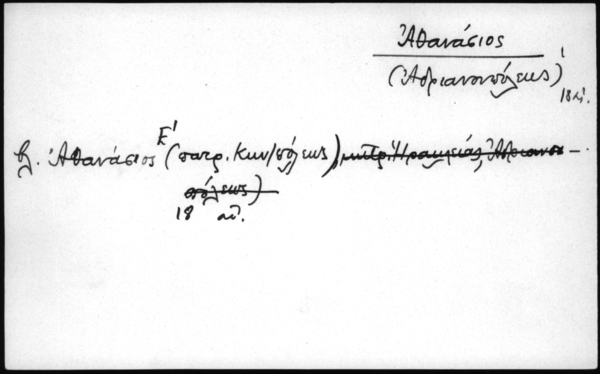 Ἀθανάσιος
(Ἀδριανουπόλεως)
18 αἰ.
βλ. Ἀθανάσιος Ε' (πατρ. Κων/πόλεως), μητρ. Ἡρακλείας, Ἀδριανου-
πόλεως)
18 αἰ.